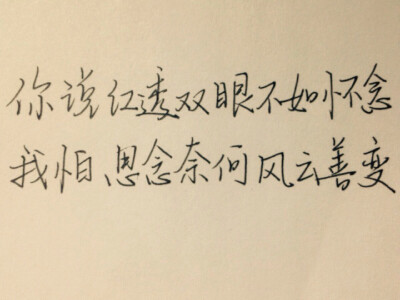 你说红透双眼不如怀念
我怕思念奈何风云善变